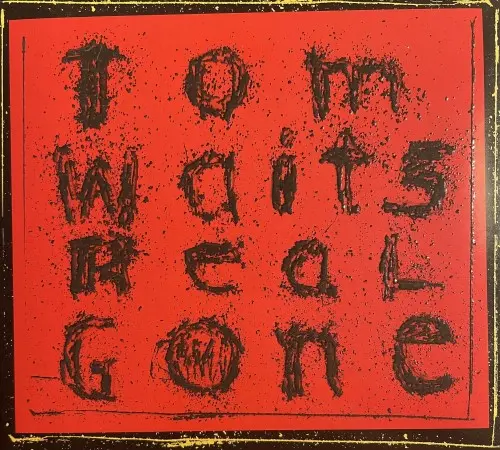 Tom
Waits
Real
Gone